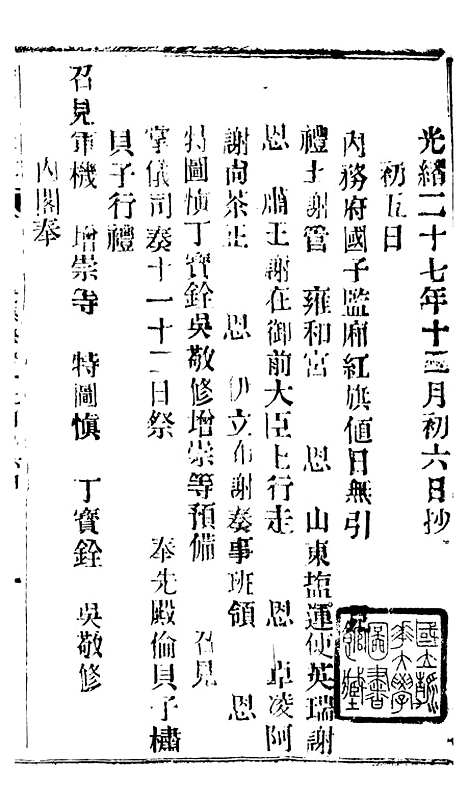 光緒二十七年十二月初六日抄
初五日
內務府國子監廂紅旗值日無引見
禮王謝管 雍和宮 恩 山東塩運使英瑞謝
恩 肅王謝在御前大臣上行走 恩 卓凌阿
謝尚茶正 恩 伊立布謝奏事班領 恩
特圖慎丁寶銓吳敬修增崇等預備 召見
掌儀司奏十一十二日祭 奉先殿倫貝子櫹
貝子行禮
召見軍機 增崇等 特圖慎 丁寶銓 吳敬修
內閣奉